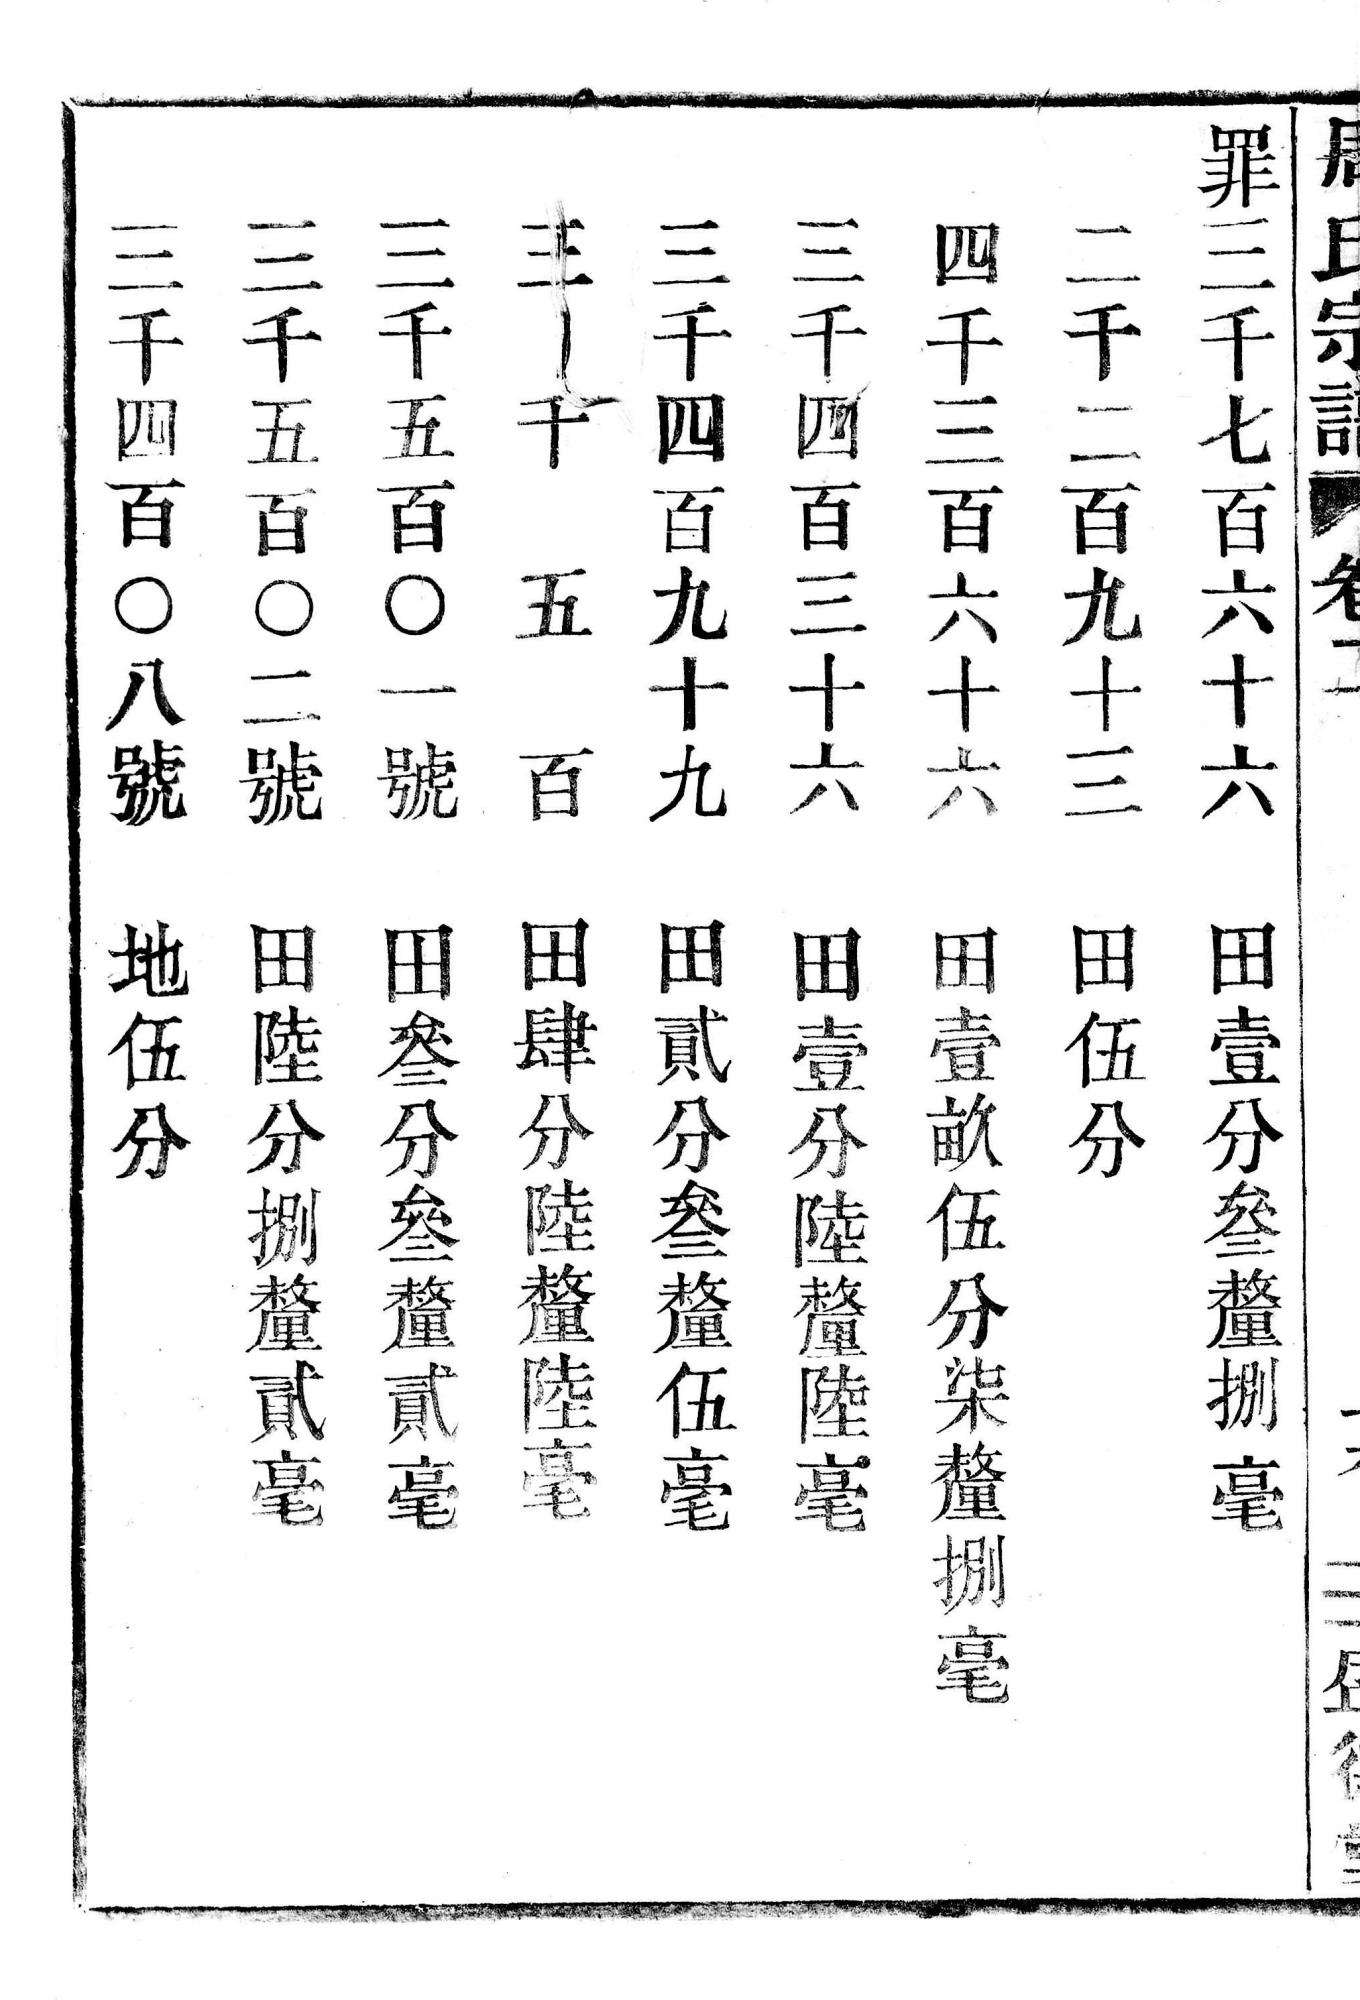 周氏宗譜 卷十
罪三千七百六十六 田壹分叄釐捌毫
二千二百九十三 田伍分
四千三百六十六 田壹畝伍分柒釐捌毫
三千四百三十六 田壹分陸釐陸毫
三千四百九十九 田貳分叄釐伍毫
三千五百 田肆分陸釐陸毫
三千五百〇一號 田叄分叄釐貳毫
三千五百〇二號 田陸分捌釐貳毫
三千四百〇八號 地伍分